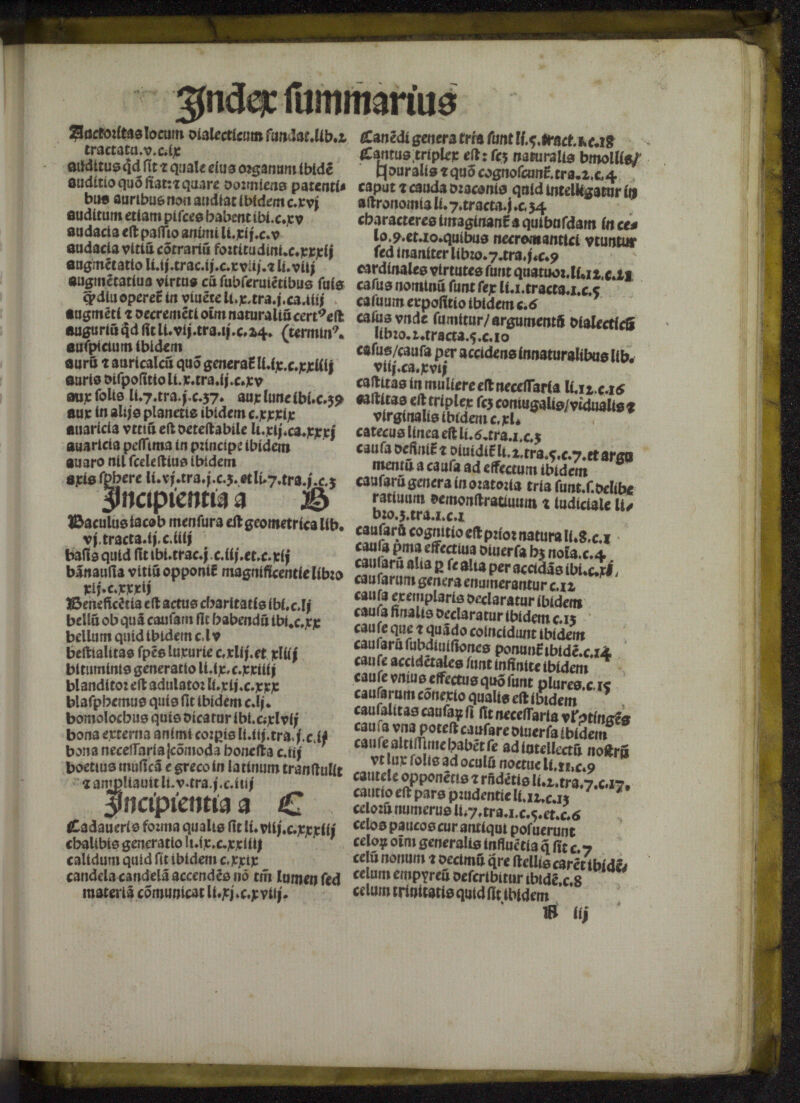 Index summarius
Auctoritas locum dialecticum fundat.lib.2
tractatu.v.c.ix
auditus qd sit ⁊ quale eius organum ibidē
auditio quō fiat:⁊ quare dormiens patenti⸗
bus auribus non audiat ibidem c.xvj
auditum etiam pisces habent ibi.c.xv
audacia est passio animi li.xij.c.v
audacia vitiū cōtrariū fortitudini.c.xxxij
augmētatio li.ij.trac.ij.c.xviij.⁊ li.viij
augmētatiua virtus cū subseruiētibus suis
qͣ̄diu operet᷑ in viuēte li.x.tra.j.ca.iiij
augmēti ⁊ decremēti oīm naturaliū certꝰ est
auguriū qd̄ sit li.vij.tra.ij.c.24. (terminꝰ.
auspicium ibidem
aurū ⁊ auricalcū quō generat᷑ li.ix.c.xxiiij
auris dispositio li.x.tra.ij.c.xv
aux solis li.7.tra.j.c.37. aux lune ibi.c.39
aux in alijs planetis ibidem c.xxxix
auaricia vitiū est detestabile li.xij.ca.xxxj
auaricia pessima in principe ibidem
auaro nil scelestius ibidem
axis sphere li.vj.tra.j.c.3.et li.7.tra.j.c.3
Incipientia a B
Baculus iacob mensura est geometrica lib.
vj.tracta.ij.c.iiij
basis quid sit ibi.trac.j.c.iij.et.c.xij
bānausia vitiū opponit᷑ magnificentie libro
xij.c.xxxij
Beneficētia est actus charitatis ibi.c.lj
bellū ob quā causam sit habendū ibi.c.xx
bellum quid ibidem c.lv
bestialitas spēs luxurie c.xlij.et xliij
bituminis generatio li.ix.c.xxiiij
blanditor est adulator li.xij.c.xxx
blasphemus quis sit ibidem c.lj.
bomolochus quis dicatur ibi.c.xlvij
bona externa animi corpis li.iij.tra.j.c.ij
bona necessaria|cōmoda honesta c.iij
boetius musicā e greco in latinum transtulit
⁊ ampliauit li.v.tra.j.c.iiij
Incipientia a C
Cadaueris forma qualis sit li.viij.c.xxxiij
chalibis generatio li.ix.c.xxiiij
calidum quid sit ibidem c.xxix
candela candelā accendēs nō tm̄ lumen sed
materiā cōmunicat li.xj.c.xviij.
Canēdi genera tria sunt li.5.tract.1.c.18
Cantus triplex est: scꝫ naturalis bmollis/
♮duralis ⁊ quō cognoscunt᷑.tra.2.c.4
caput ⁊ cauda draconis quid intelligatur in
astronomia li.7.tracta.j.c.34
characteres imaginant᷑ a quibusdam in ce⸗
lo.9.et.10.quibus necromantici vtuntur
sed inaniter libro.7.tra.j.c.9
cardinales virtutes sunt quatuor.li.12.c.21
casus nominū sunt sex li.1.tracta.1.c.5
casuum expositio ibidem c.6
casus vnde sumitur/argumentū dialecticū
libro.2.tracta.5.c.10
casus/causa per accidens innaturalibus lib.
viij.ca.xvij
castitas in muliere est necessaria li.12.c.16
castitas est triplex scꝫ coniugalis/vidualis ⁊
virginalis ibidem c.xl.
catecus linea est li.6.tra.1.c.3
causa definit᷑ ⁊ diuidit᷑ li.2.tra.5.c.7.et argu
mentū a causa ad effectum ibidem
causarū genera in oratoria tria sunt.s.delibe
ratiuum demonstratiuum ⁊ iudiciale li⸗
bro.3.tra.1.c.1
causarū cognitio est prior natura li.8.c.1
causa pma effectiua diuersa hꝫ noīa.c.4
causarū alia ꝑ se alia per accidās ibi.c.xj.
causarum genera enumerantur c.12
causa exemplaris declaratur ibidem
causa finalis declaratur ibidem c.13
cause que ⁊ quādo coincidunt ibidem
causarū subdiuisiones ponunt᷑ ibidē.c.14
cause accidētales sunt infinite ibidem
cause vnius effectus quō sunt plures.c.15
causarum cōnexio qualis est ibidem
causalitas causaꝝ si sit necessaria vl̓ ꝯtingēs
causa vna potest causare diuersa ibidem
cause altissime habēt se ad intellectū nostrū
vt lux solis ad oculū noctue li.11.c.9
cautele opponētis ⁊ rn̄dētis li.2.tra.7.c.17.
cautio est pars prudentie li.12.c.13
celorū numerus li.7.tra.1.c.5.et.c.6
celos paucos cur antiqui posuerunt
celoꝝ oīm generalis influētia q̄ sit c.7
celū nonum ⁊ decimū q̄re stellis carēt ibidē⸗
celum empyreū describitur ibidē.c.8
celum trinitatis quid sit ibidem
B iij